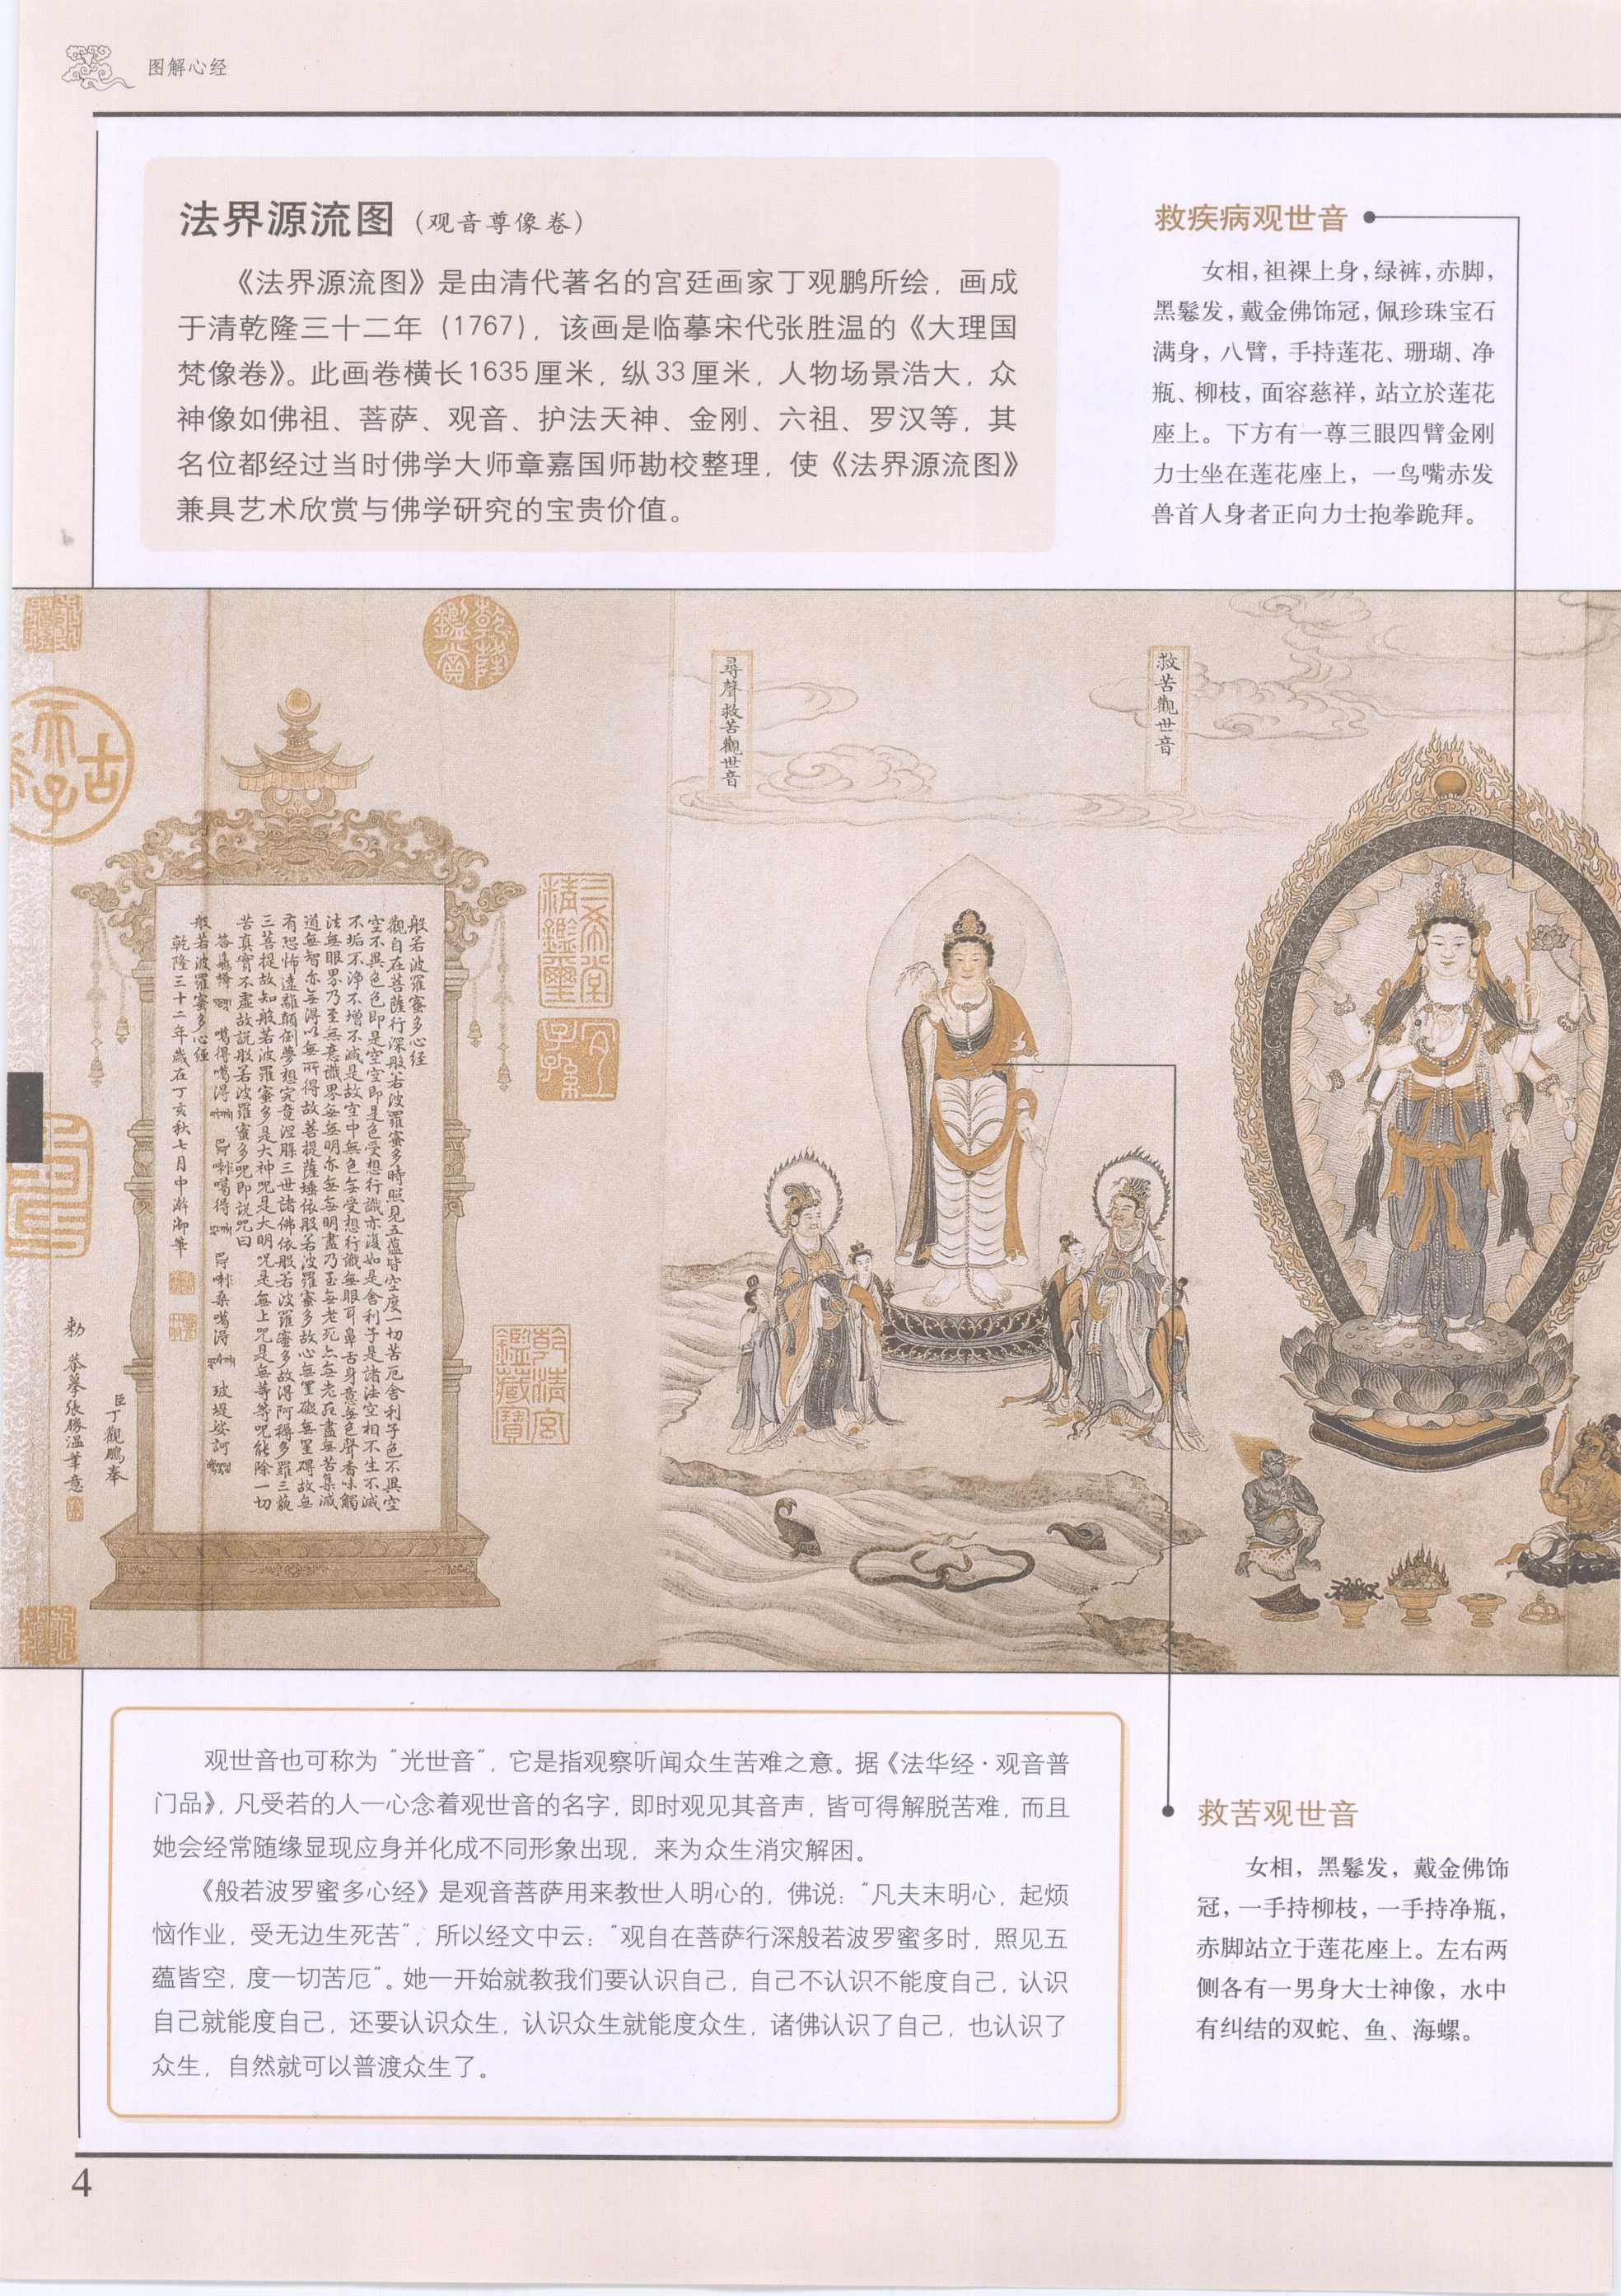 图解心经
法界源流图（观音尊像卷）
《法界源流图》是由清代著名的宫廷画家丁观鹏所绘，画成
于清乾隆三十二年（1767），该画是临摹宋代张胜温的《大理国
梵像卷》。此画卷横长1635厘米，纵33厘米，人物场景浩大，众
神像如佛祖、菩萨、观音、护法天神、金刚、六祖、罗汉等，其
名位都经过当时佛学大师章嘉国师勘校整理，使《法界源流图》
兼具艺术欣赏与佛学研究的宝贵价值。
救疾病观世音
女相，袒裸上身，绿裤，赤脚，
黑鬈发，戴金佛饰冠，佩珍珠宝石
满身，八臂，手持莲花、珊瑚、净
瓶、柳枝，面容慈祥，站立於莲花
座上。下方有一尊三眼四臂金刚
力士坐在莲花座上，一鸟嘴赤发
兽首人身者正向力士抱拳跪拜。
救苦觀世音
尋聲救苦觀世音
乾隆鑑賞
三希堂精鑑璽
宜子孫
乾清宮鑑藏寶
般若波羅蜜多心经
觀自在菩薩行深般若波羅蜜多時照見五蘊皆空度一切苦厄舍利子色不異空
空不異色色即是空空即是色受想行識亦復如是舍利子是諸法空相不生不滅
不垢不淨不增不減是故空中無色無受想行識無眼耳鼻舌身意無色聲香味觸
法無眼界乃至無意識界無無明亦無無明盡乃至無老死亦無老死盡無苦集滅
道無智亦無得以無所得故菩提薩埵依般若波羅蜜多故心無罣礙無罣礙故無
有恐怖遠離顛倒夢想究竟涅槃三世諸佛依般若波羅蜜多故得阿耨多羅三藐
三菩提故知般若波羅蜜多是大神咒是大明咒是無上咒是無等等咒能除一切
苦真實不虛故說般若波羅蜜多咒即說咒曰
噶得噶得 巴喇噶得 巴喇桑噶得 玻堤娑訶
般若波羅蜜多心經
乾隆三十二年歲在丁亥秋七月中澣御筆
臣丁觀鵬奉
勅 恭摹張勝温筆意
观世音也可称为“光世音”，它是指观察听闻众生苦难之意。据《法华经·观音普
门品》，凡受若的人一心念着观世音的名字，即时观见其音声，皆可得解脱苦难，而且
她会经常随缘显现应身并化成不同形象出现，来为众生消灾解困。
《般若波罗蜜多心经》是观音菩萨用来教世人明心的，佛说：“凡夫末明心，起烦
恼作业，受无边生死苦”，所以经文中云：“观自在菩萨行深般若波罗蜜多时，照见五
蕴皆空，度一切苦厄”。她一开始就教我们要认识自己，自己不认识不能度自己，认识
自己就能度自己，还要认识众生，认识众生就能度众生，诸佛认识了自己，也认识了
众生，自然就可以普渡众生了。
救苦观世音
女相，黑鬈发，戴金佛饰
冠，一手持柳枝，一手持净瓶，
赤脚站立于莲花座上。左右两
侧各有一男身大士神像，水中
有纠结的双蛇、鱼、海螺。
4